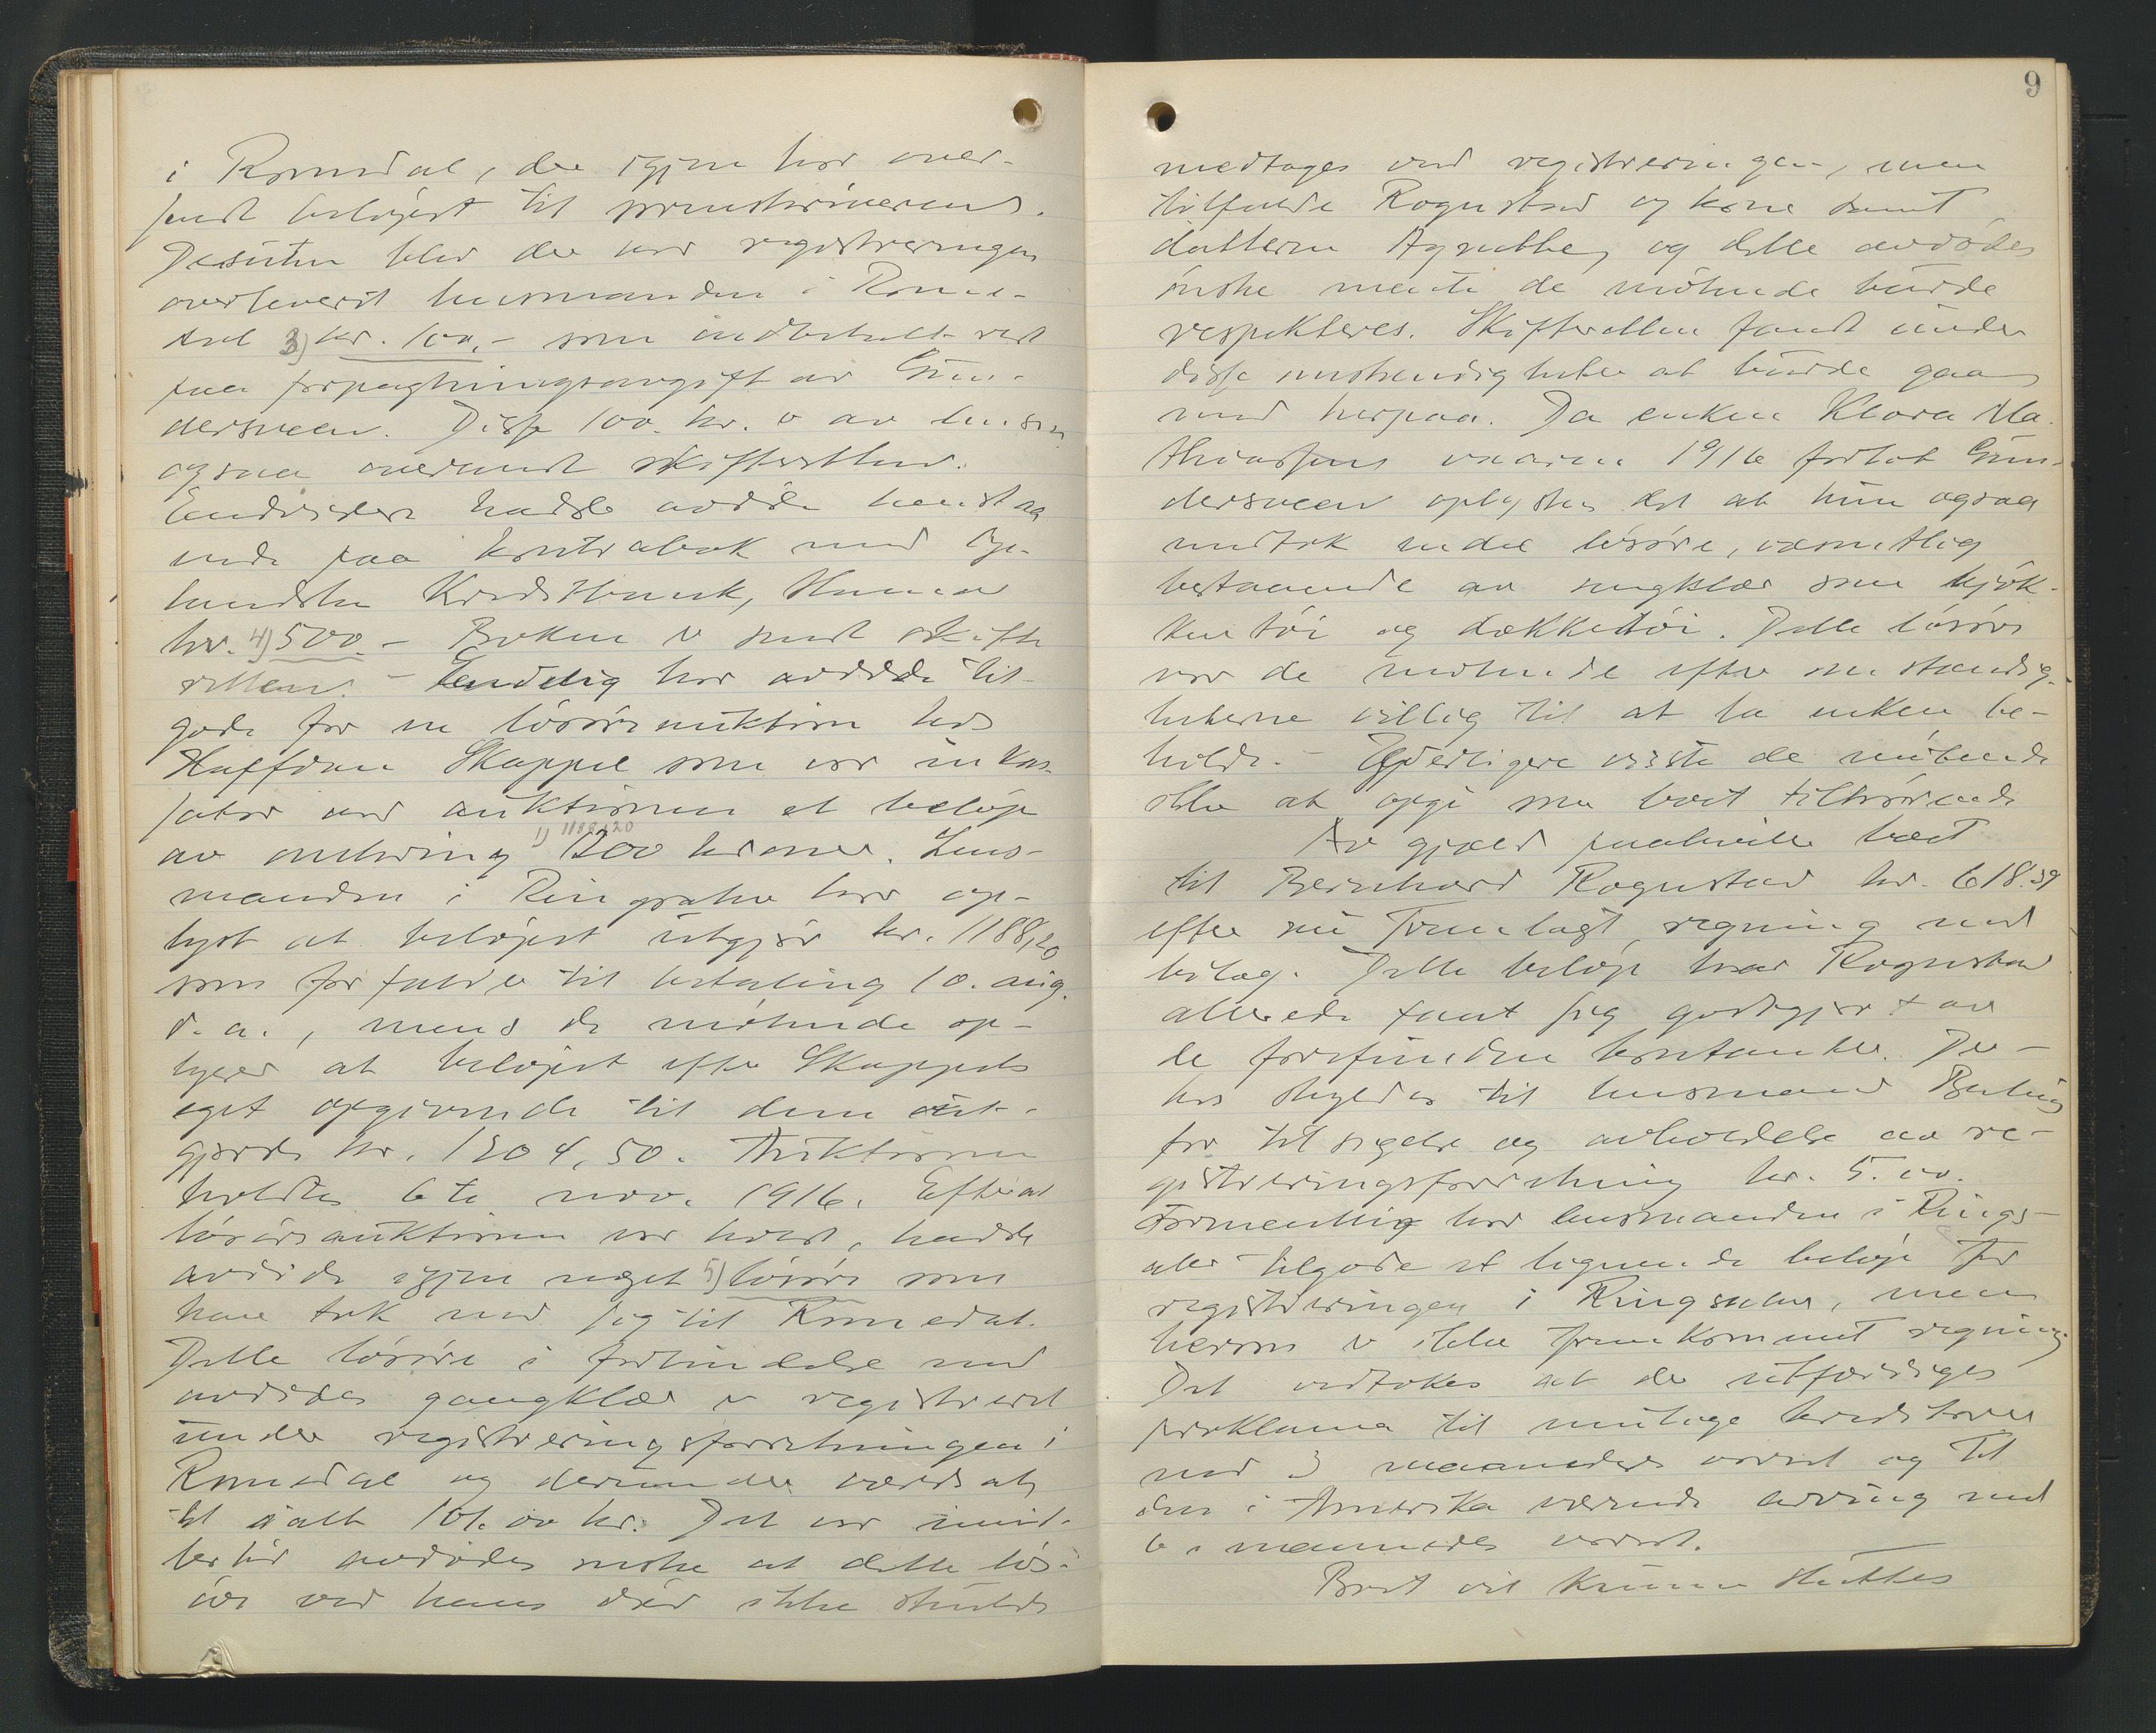 i Romedal, der igjen har over-
sendt beløpet til sorenskriveren.
Desuten blev der ved registreringen
overleveret lensmanden i Rome-
dal 3) kr. 100,- som indbetalt rest
paa forpagtningsavgift av Gun-
dersveen. Disse 100 kr. er av lensm
ogsaa oversendt skifteretten.
Endvidere hadde avdøde henstaa
ende paa kontrabok med Op-
landske Kreditbank, Hamar
kr. 4) 500.- Boken er sendt skifte
retten. - Endelig har avdøde til-
gode for en løsøreauktion hos
Halfdan Skappel som var inkas-
sator ved auktionen et beløp
av omkring 1) 1188,20 1200 kroner. Lens-
manden i Ringsaker har op-
lyst at beløpet utgjør kr. 1188,20
som forfalder til betaling 10. aug.
d. a., mens de møtende op-
lyser at beløpet efter Skappels
eget opgivende til dem ut-
gjorde kr. 1204,50. Auktionen
holdtes 6te nov. 1916. Efter at
løsøreauktionen var holdt, hadde
avdøde igjen noget 5) løsøre som
han tok med sig til Romedal.
Dette løsøre i forbindelse med
avdødes gangklær er registrert
under registreringsforretningen i
Romedal og derunder værdsat
til ialt 101.00 kr. Det var imid-
lertid avdødes ønske at dette løs-
øre ved hans død ikke skulde
9
medtages ved registreringen, men
tilfalde Rognstad og kone samt
datteren Agnethe, og dette avdødes
ønske mente de møtende burde
respekteres. Skifteretten fandt under
disse omstendigheter at burde gaa
med herpaa. Da enken Klara Ma-
thiassens vaaren 1916 forlot Gun-
dersveen oplystes det at hun ogsaa
medtok endel løsøre, væsentlig
bestaaende av sengklær som kjøk-
kentøi og dækketøi. Dette løsøre
var de møtende efter omstændig-
heterne villig til at la enken be-
holde. - Yderligere visste de møtende
ikke at opgi som boet tilhørende
Av gjæld paahviler boet
til Bernhard Rognstad kr. 618.39
efter nu fremlagt regning med
bilag. Dette beløp har Rognstad
allerede faat sig godtgjort av
de forefundne kontanter. Der-
hos skyldes til lensmand
for tilsigelse og avholdelse av re-
gistreringsforretning kr. 5.00.
Formentlig har lensmanden i Rings-
aker tilgode et lignende beløp for
registreringen i Ringsaker, men
herom er ikke fremkommet regning.
Det vedtokes at der utfærdiges
proklama til mulige kreditorer
med 3 maaneders varsel og til
den i Amerika værende arving med
6 maaneders varsel.
Boet vil kunne sluttes